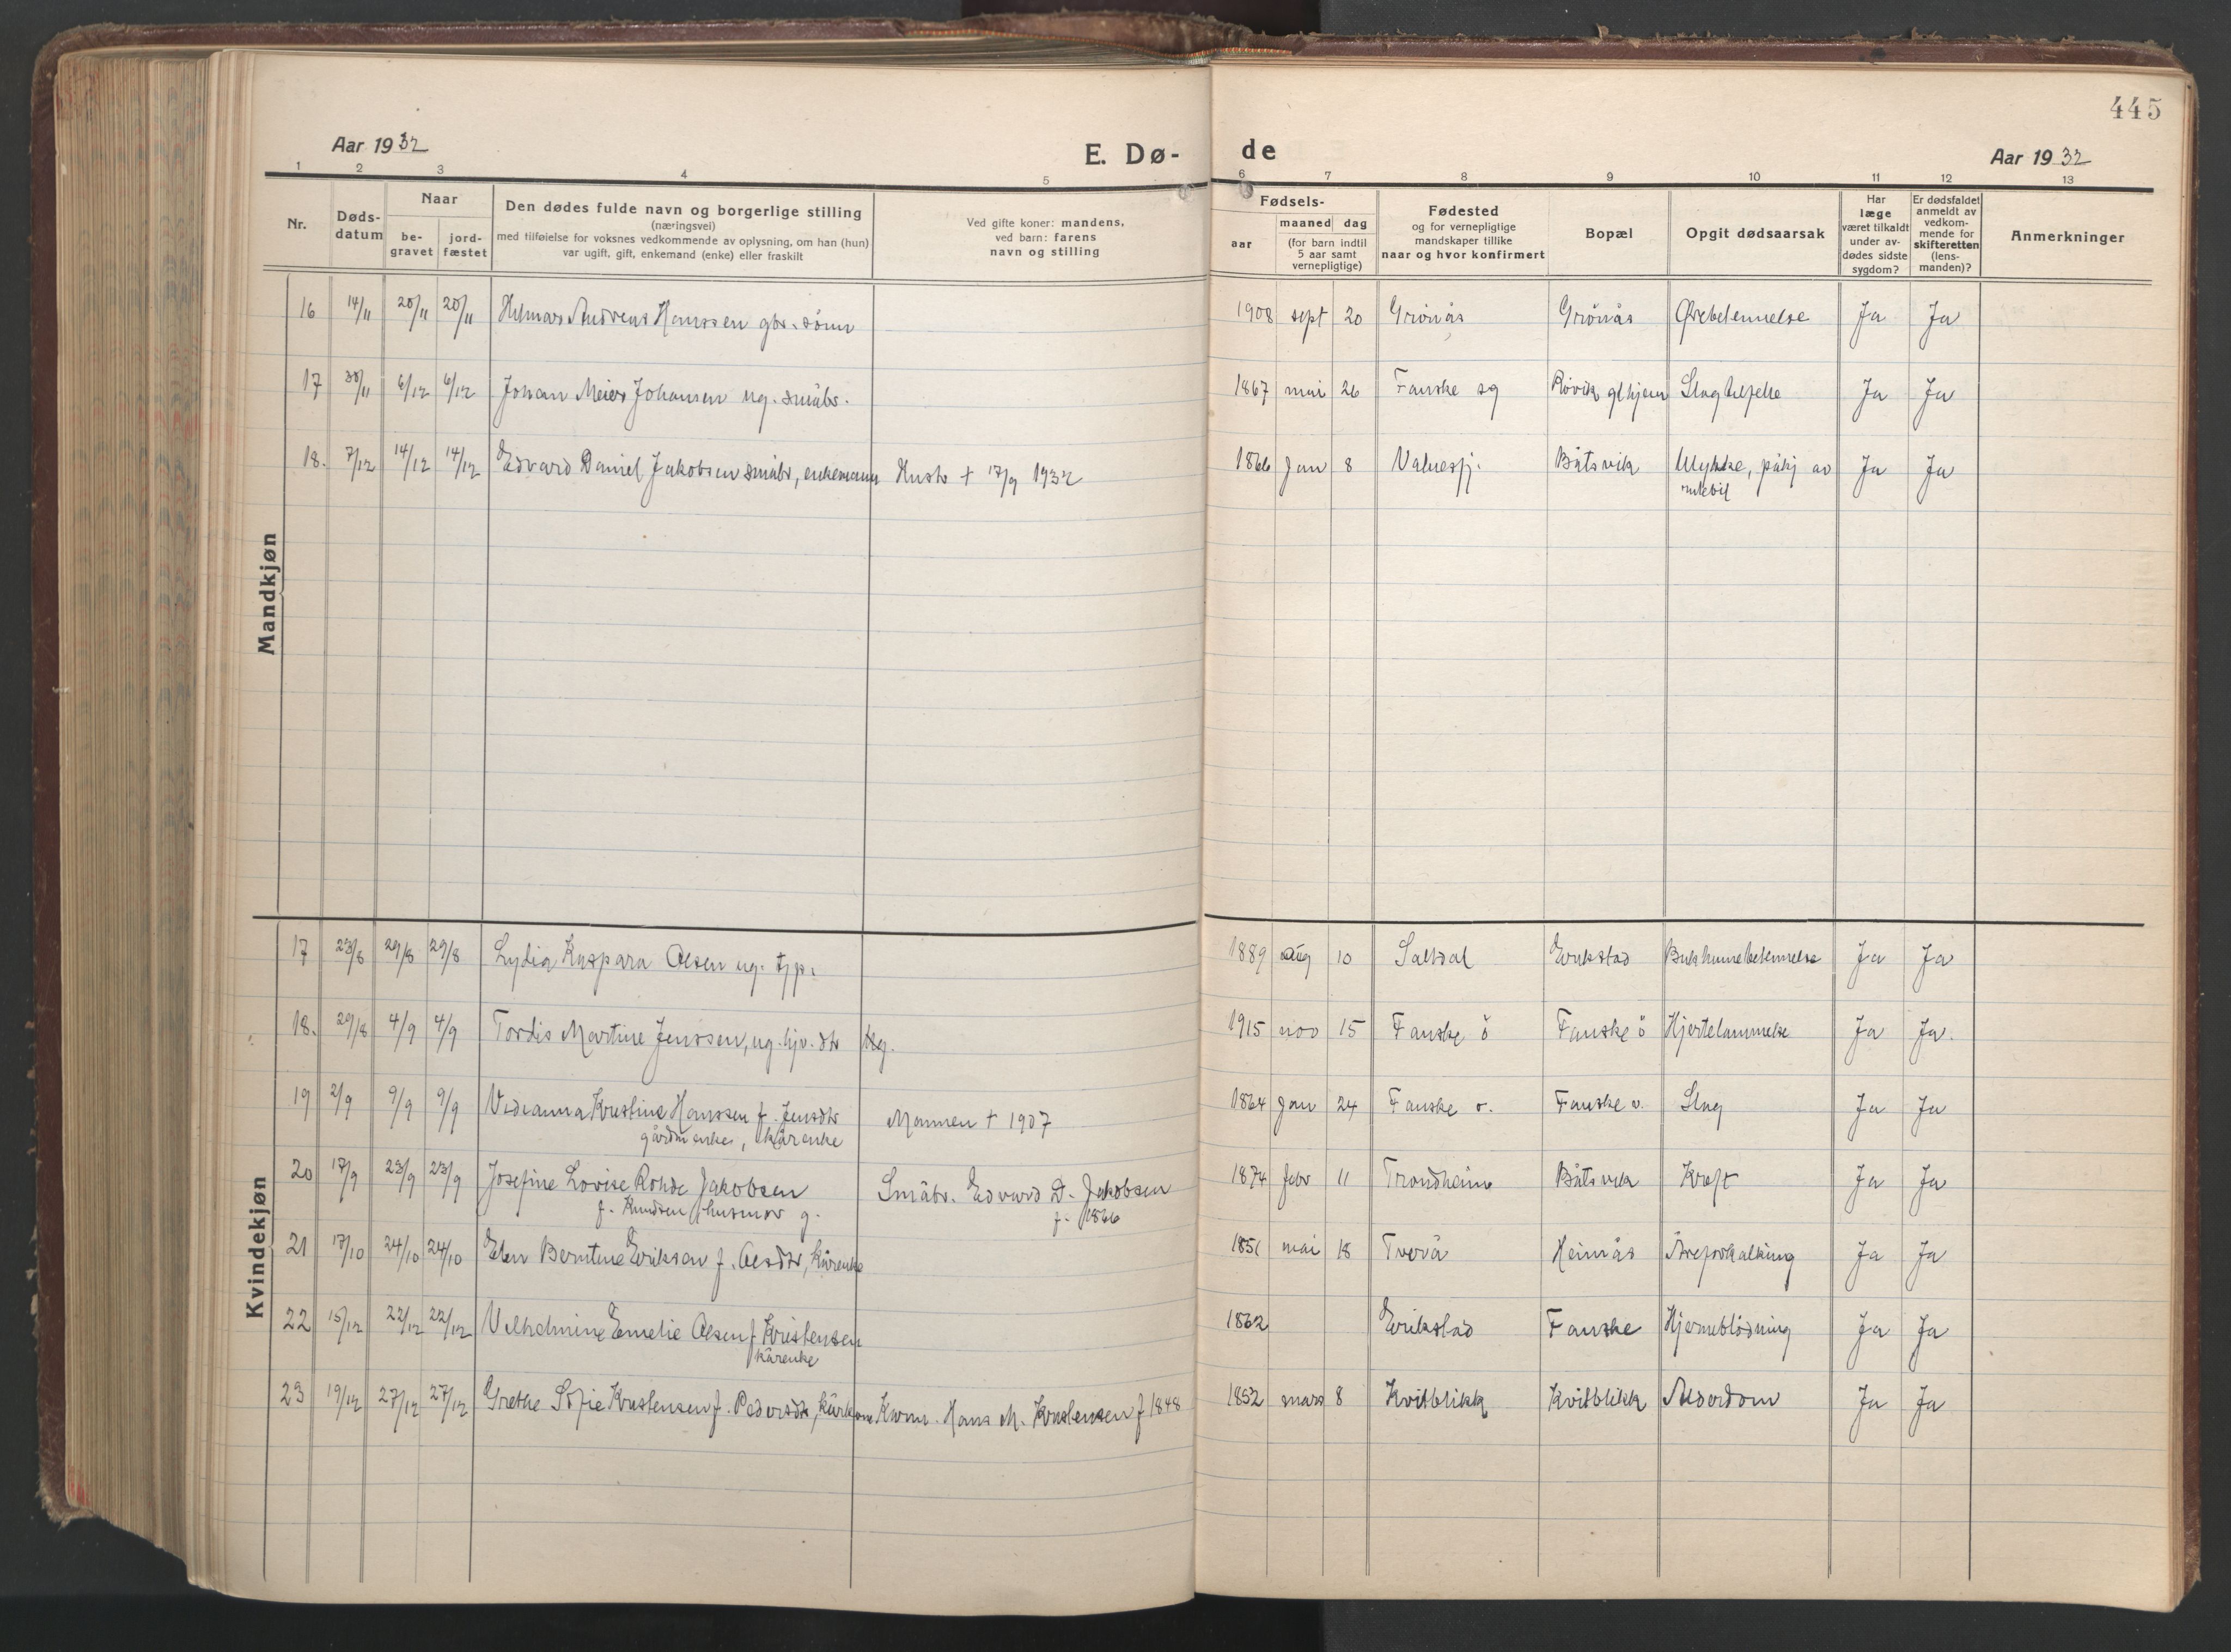 445
Aar 1932
E. Dø-
de
Aar 1932
1 2 3 4 5 6 7 8 9 10 11 12 13
Nr.
Døds-
datum
Naar
be-
gravet
jord-
fæstet
Den dødes fulde navn og borgerlige stilling
(næringsvei)
med tilføielse for voksnes vedkommende av oplysning, om han (hun)
var ugift, gift, enkemand (enke) eller fraskilt
Ved gifte koner: mandens,
ved barn: farens
navn og stilling
Fødsels-
aar
maaned dag
(for barn indtil
5 aar samt
vernepligtige)
Fødested
og for vernepligtige
mandskaper tillike
naar og hvor konfirmert
Bopæl
Opgit dødsaarsak
Har
læge
været tilkaldt
under av-
dødes sidste
sygdom?
Er dødsfaldet
anmeldt av
vedkom-
mende for
skifteretten
(lens-
manden)?
Anmerkninger
Mandkjøn
16 14/11 20/11 20/11 Hilmar Andreas Hanssen gbr. sönn 1908 sept 20 Grönås Grönås Ørebetennelse Ja Ja
17 30/11 6/12 6/12 Johan Meier Johansen ug. småbr. 1867 mai 26 Fauske sg Rövik glhjem Slagtilfelle Ja Ja
18. 7/12 14/12 14/12 Edvard Daniel Jakobsen småbr, enkemann Hustr + 17/9 1932 1866 Jan 8 Valnesfj. Båtsvik Ulykke, påkj av
rutebil Ja Ja
Kvindekjøn
17 23/8 29/8 29/8 Lydia Kaspara Olsen ug. tjp. 1889 aug 10 Saltdal Erikstad Bukhinnebetennelse Ja Ja
18. 29/8 4/9 4/9 Tordis Martine Jenssen, ug. hjv. dtr 1915 nov 15 Fauske ö Fauske ö Hjertelammelse Ja Ja.
19 2/9 9/9 9/9 Vedianna Kristine Hanssen f. Jensdtr Mannen + 1907 1864 Jan 24 Fauske v. Fauske v. Slag Ja Ja
gårdm enke, kårenke
20 17/9 23/9 23/9 Josefine Lovise Rohde Jakobsen Småbr. Edvard D. Jakobsen 1874 febr 11 Trondheim Båtsvik Kreft Ja Ja
f. Knudsen husmor g. f. 1866
21 17/10 24/10 24/10 Elen Berntine Eriksen f. Olsdtr, kårenke 1851 mai 18 Tverå Heimås Åreforkalking Ja Ja
22 15/12 22/12 22/12 Vilhelmine Emelie Olsen f Kristensen 1862 Erikstad Fauske Hjerneblödning Ja Ja
kårenke
23 19/12 27/12 27/12 Grethe Sofie Kristensen f. Pedersdtr, kårkone Kårm. Hans M. Kristensen f 1848 1852 mars 8 Kvitblikk Kvitblikk Alderdom Ja Ja